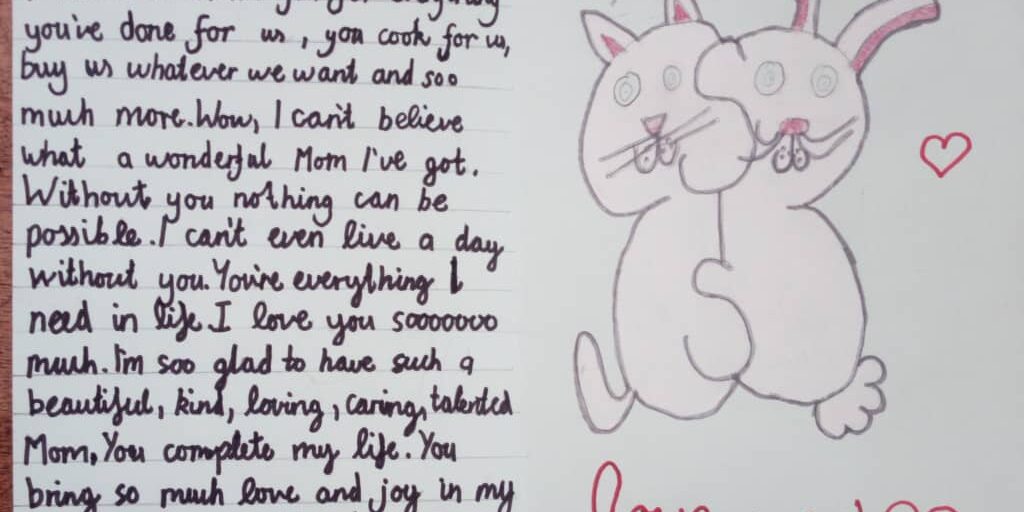 you've done for us, you cook for us,
buy us whatever we want and soo
much more. Wow, I can't believe
what a wonderful Mom I've got.
Without you nothing can be
possible. I can't even live a day
without you. You're everything I
need in life. I love you sooooooo
much. I'm soo glad to have such a
beautiful, kind, loving, caring, talented
Mom, You complete my life. You
bring so much love and joy in my